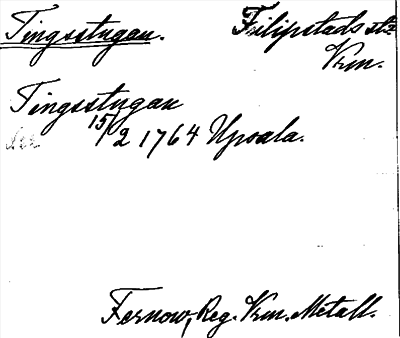 Tingsstugan. Filipstads stz
Vrm.
Tingsstugan
15/2 1764 Upsala.
Fernow, Reg. Vrm. Metall.